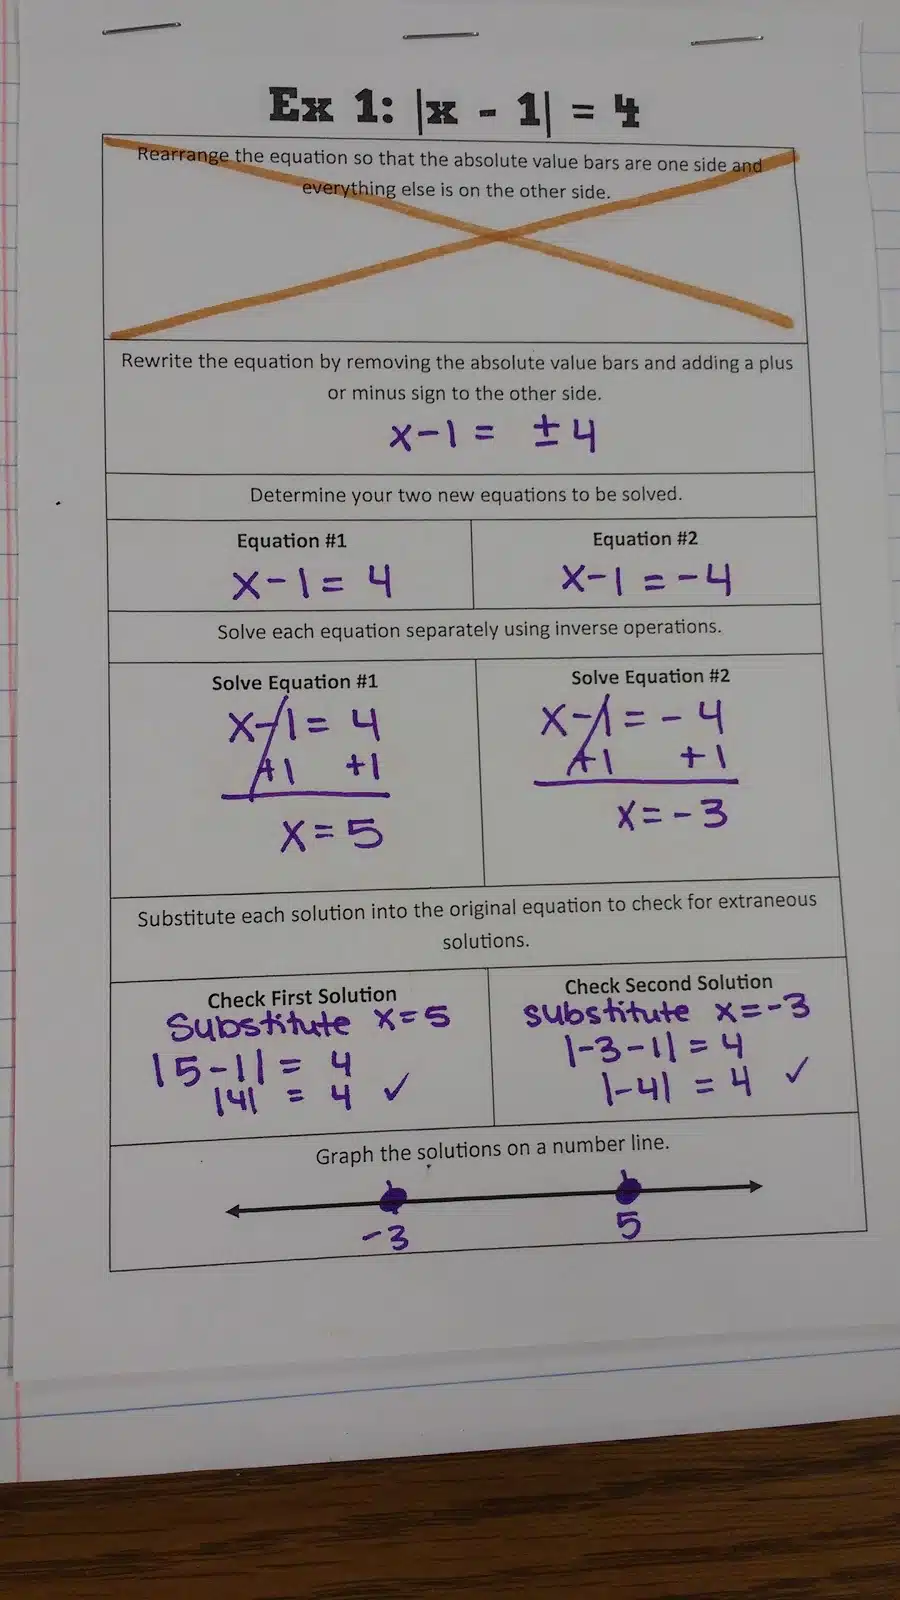 Ex 1: |x - 1| = 4
Rearrange the equation so that the absolute value bars are one side and
everything else is on the other side.
Rewrite the equation by removing the absolute value bars and adding a plus
or minus sign to the other side.
x-1 = ±4
Determine your two new equations to be solved.
Equation #1
x-1 = 4
Equation #2
x-1 = -4
Solve each equation separately using inverse operations.
Solve Equation #1
x-1 = 4
+1 +1
x = 5
Solve Equation #2
x-1 = -4
+1 +1
x = -3
Substitute each solution into the original equation to check for extraneous
solutions.
Check First Solution
Substitute x=5
|5-1| = 4
|4| = 4 ✓
Check Second Solution
substitute x=-3
|-3-1| = 4
|-4| = 4 ✓
Graph the solutions on a number line.
-3 5